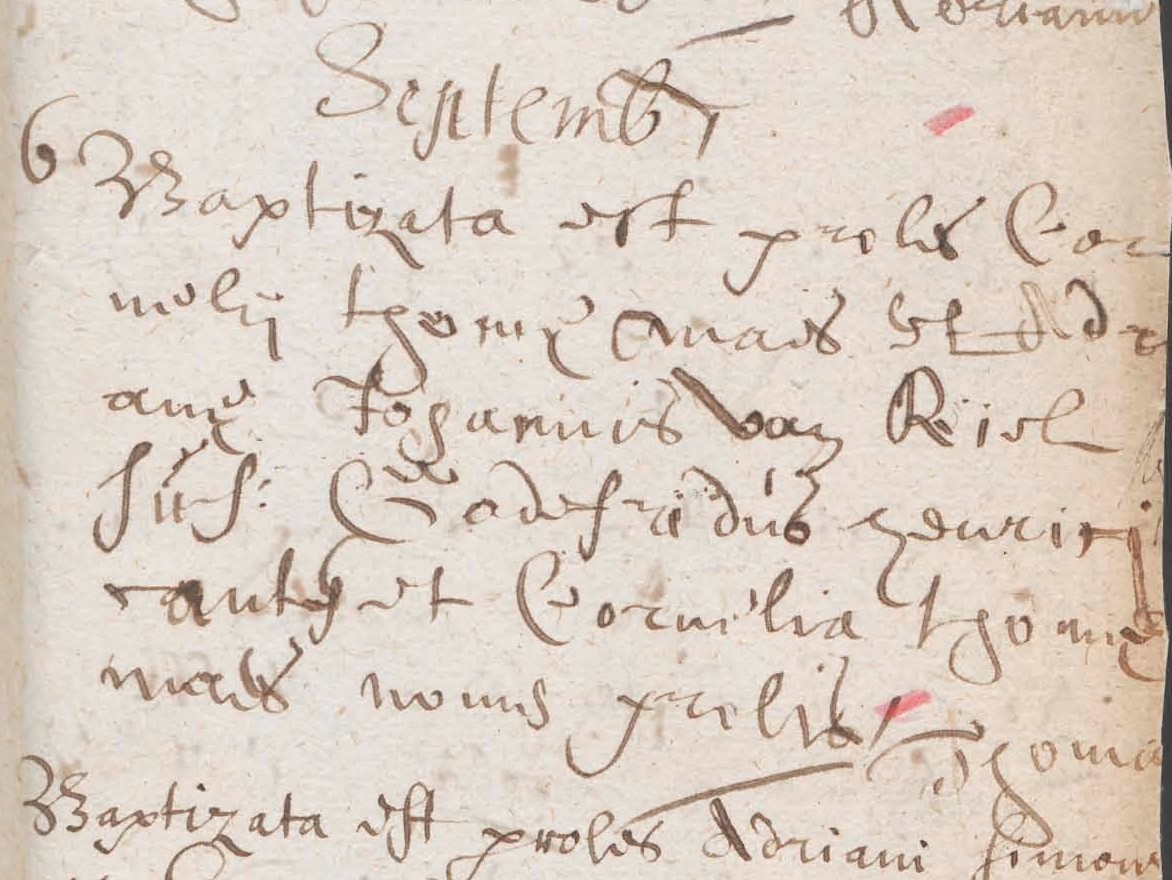 Adriani
Septemb
6 Baptizata est proles Cor
nelij thomę maes et Adr
anę Johannis van Riel
sus: Godefridus henrici
et Cornelia thomę
maes nomen prolis Thoma
Baptizata est proles Adriani simon